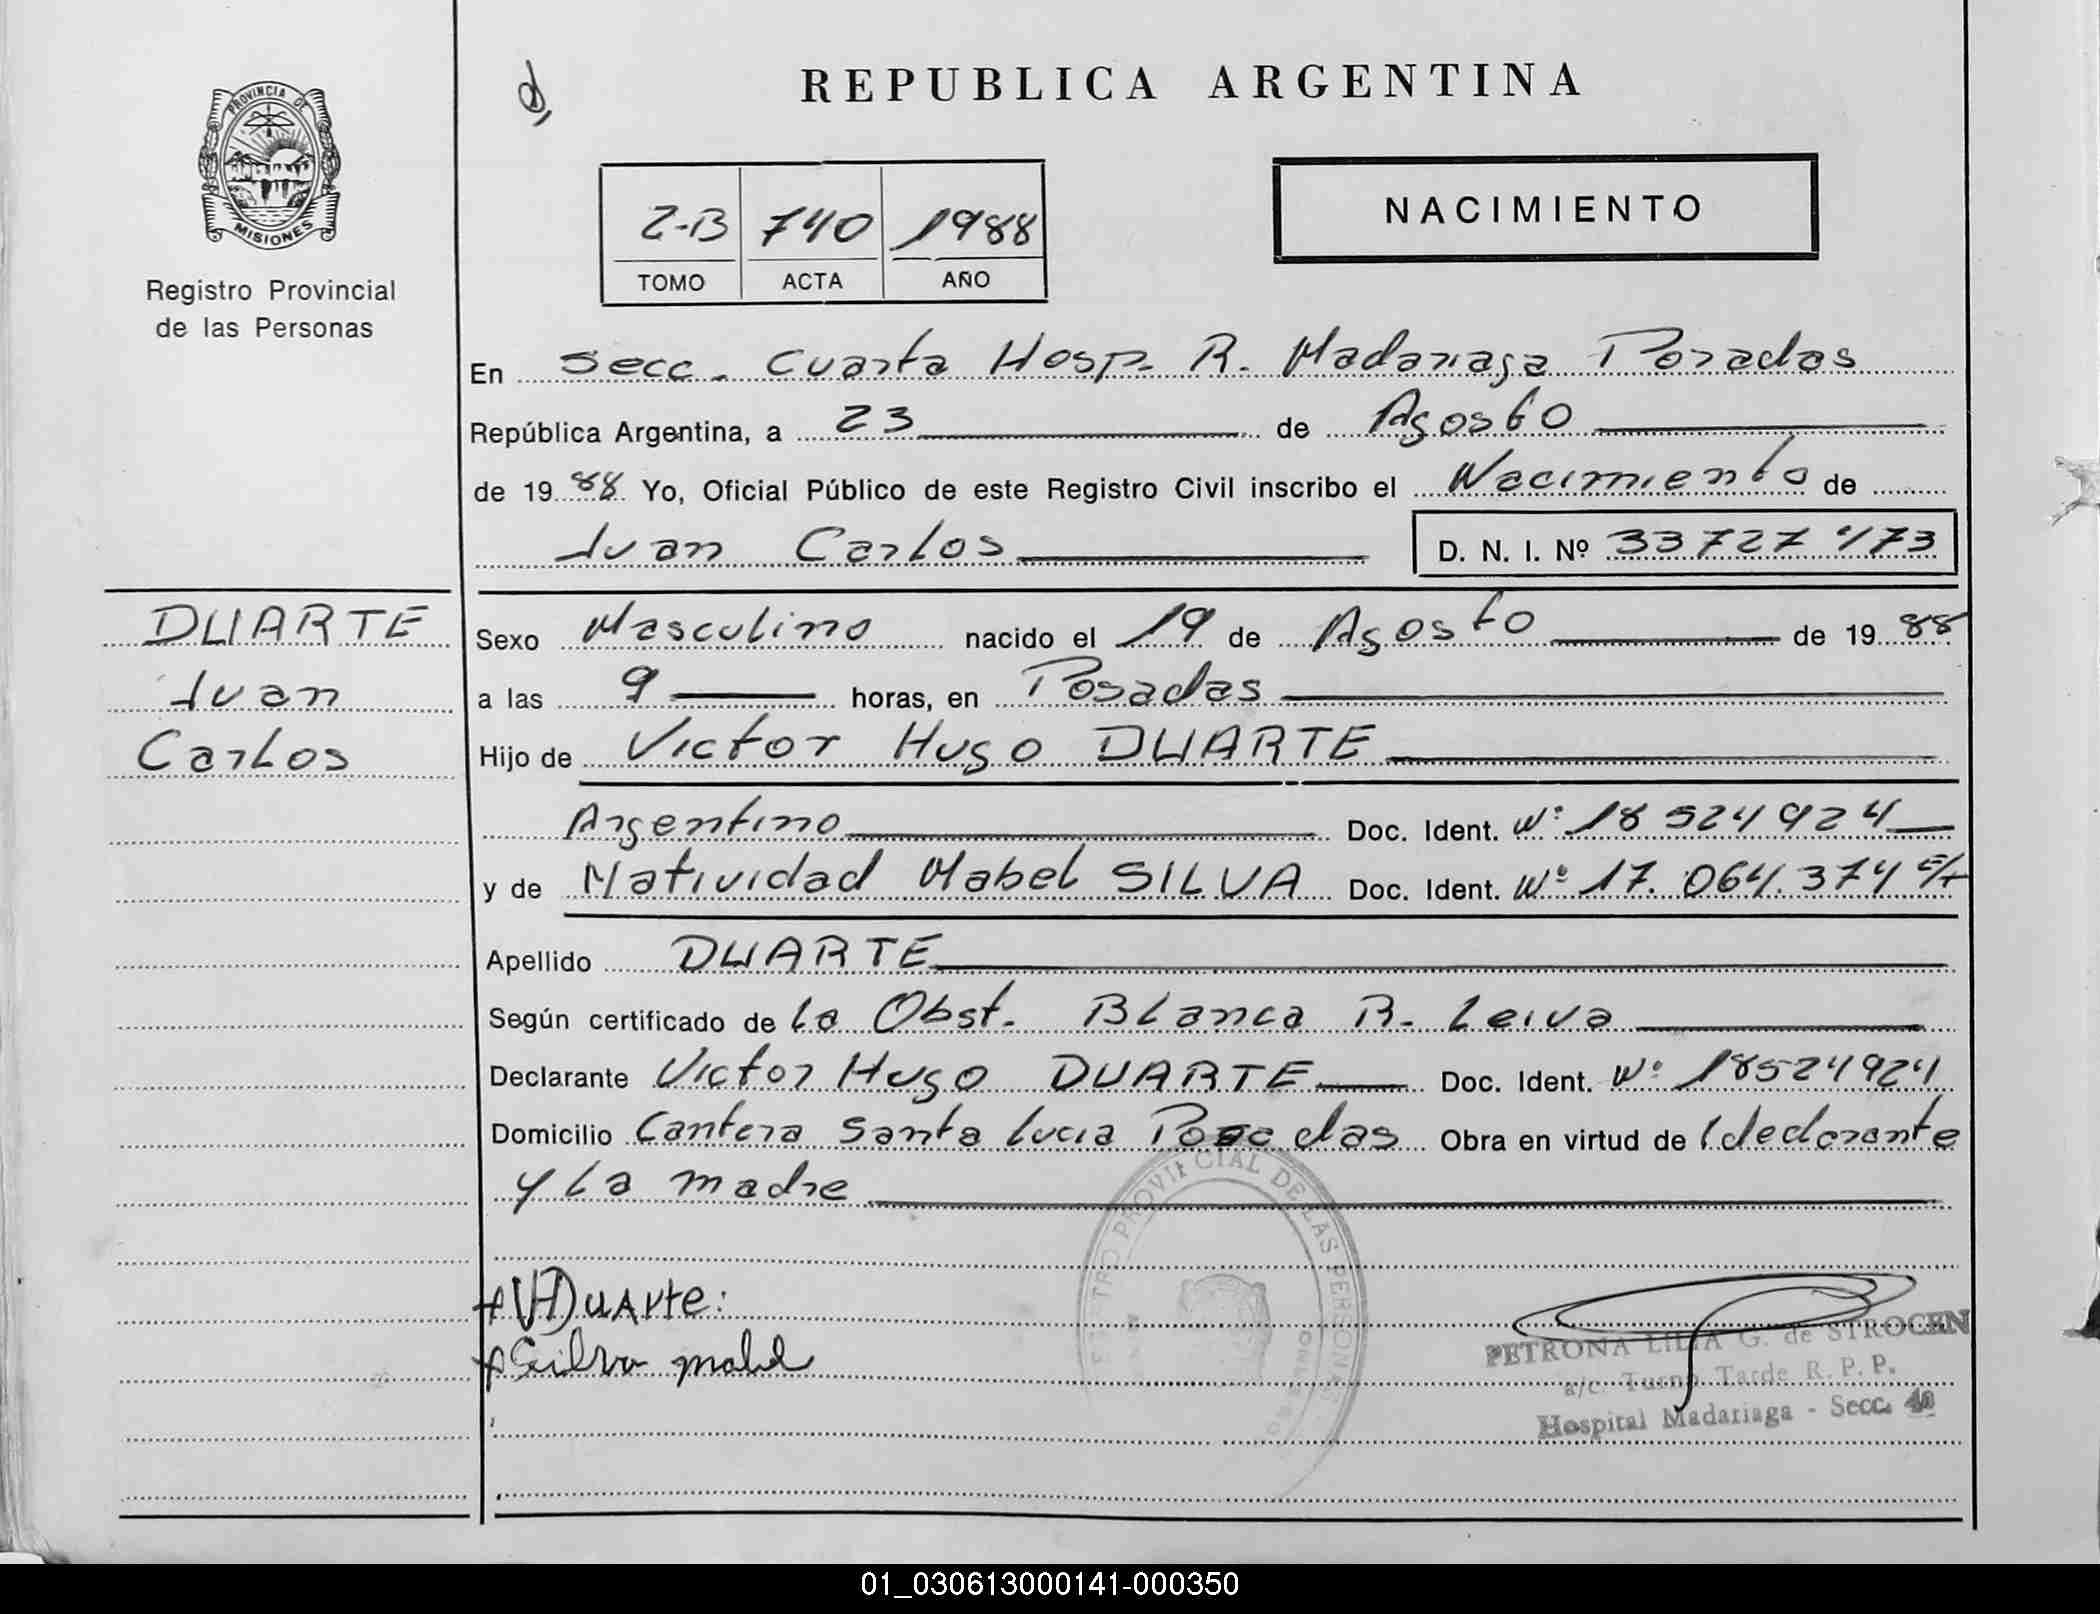 PROVINCIA DE
MISIONES
Registro Provincial
de las Personas
REPUBLICA ARGENTINA
2-B 740 1988
TOMO ACTA AÑO
NACIMIENTO
En Secc. Cuarta Hosp. R. Madariaga Posadas
República Argentina, a 23 de Agosto
de 1988 Yo, Oficial Público de este Registro Civil inscribo el Nacimiento de
Juan Carlos D. N. I. Nº 33727473
DUARTE
Juan
Carlos
Sexo Masculino nacido el 19 de Agosto de 1988
a las 9 horas, en Posadas
Hijo de Victor Hugo DUARTE
Argentino Doc. Ident. Nº 18524924
y de Natividad Mabel SILVA Doc. Ident. Nº 17.064.374
Apellido DUARTE
Según certificado de la Obst. Blanca R. Leiva
Declarante Victor Hugo DUARTE Doc. Ident. Nº 18524924
Domicilio Cantera Santa Lucia Posadas Obra en virtud de l declarante
y la madre
VHDuarte:
Silva mabel
PETRONA LILIA G. de STROCEN
a/c. Turno Tarde R. P. P.
Hospital Madariaga - Secc. 4a
01_030613000141-000350